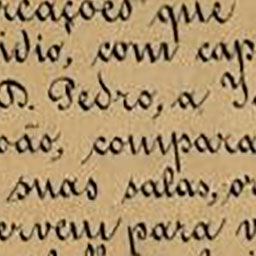 rcações que
idio, com cap
D. Pedro, a
oão, compara
suas salas, or
ervem para v